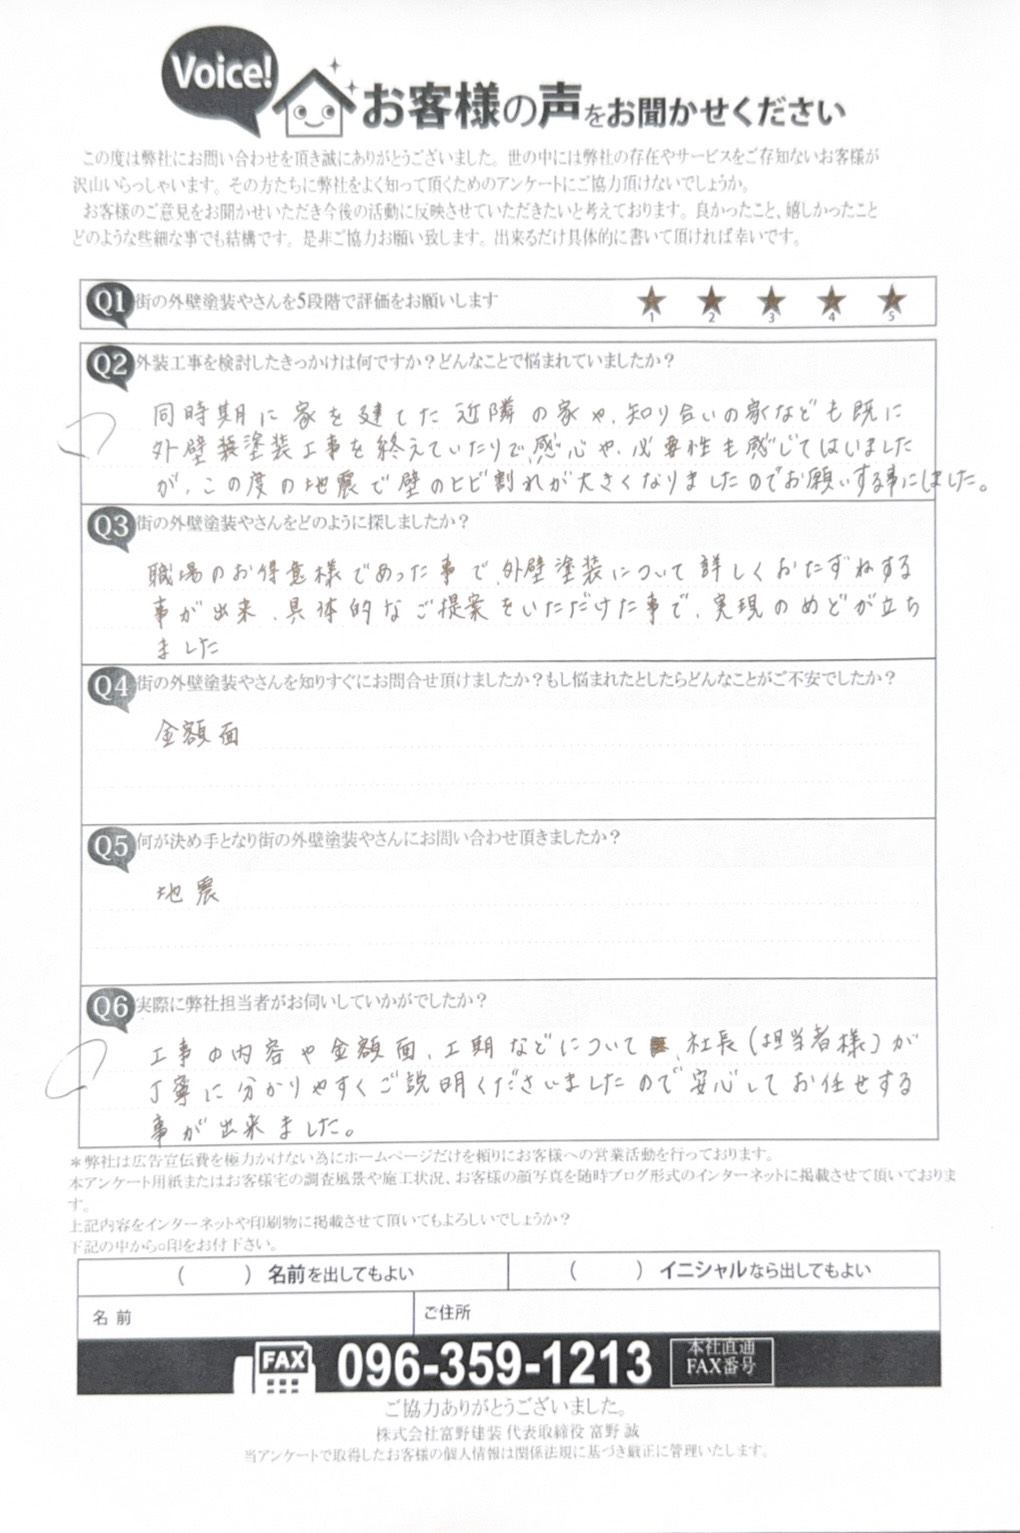 Voice!
お客様の声をお聞かせください
この度は弊社にお問い合わせを頂き誠にありがとうございました。世の中には弊社の存在やサービスをご存知ないお客様が
沢山いらっしゃいます。その方たちに弊社をよく知って頂くためのアンケートにご協力頂けないでしょうか。
お客様のご意見をお聞かせいただき今後の活動に反映させていただきたいと考えております。良かったこと、嬉しかったこと
どのような些細な事でも結構です。是非ご協力お願い致します。出来るだけ具体的に書いて頂ければ幸いです。
Q1 街の外壁塗装やさんを5段階で評価をお願いします ★ ★ ★ ★ ★
1 2 3 4 5
Q2 外装工事を検討したきっかけは何ですか？どんなことで悩まれていましたか？
同時期に家を建てた近隣の家や、知り合いの家なども既に
外壁装塗装工事を終えていたりで、感心や、必要性も感じてはいました
が、この度の地震で壁のヒビ割れが大きくなりましたのでお願いする事にしました。
Q3 街の外壁塗装やさんをどのように探しましたか？
職場のお得意様であった事で、外壁塗装について詳しくおたずねする
事が出来、具体的なご提案をいただけた事で、実現のめどが立ち
ました
Q4 街の外壁塗装やさんを知りすぐにお問合せ頂けましたか？もし悩まれたとしたらどんなことがご不安でしたか？
金額面
Q5 何が決め手となり街の外壁塗装やさんにお問い合わせ頂きましたか？
地震
Q6 実際に弊社担当者がお伺いしていかがでしたか？
工事の内容や金額面、工期などについて、社長（担当者様）が
丁寧に分かりやすくご説明くださいましたので安心してお任せする
事が出来ました。
＊弊社は広告宣伝費を極力かけない為にホームページだけを頼りにお客様への営業活動を行っております。
本アンケート用紙またはお客様宅の調査風景や施工状況、お客様の顔写真を随時ブログ形式のインターネットに掲載させて頂いておりま
す。
上記内容をインターネットや印刷物に掲載させて頂いてもよろしいでしょうか？
下記の中から○印をお付下さい。
（　　　）名前を出してもよい （　　　）イニシャルなら出してもよい
名前 ご住所
FAX 096-359-1213 本社直通
FAX番号
ご協力ありがとうございました。
株式会社富野建装 代表取締役 富野 誠
当アンケートで取得したお客様の個人情報は関係法規に基づき厳正に管理いたします。